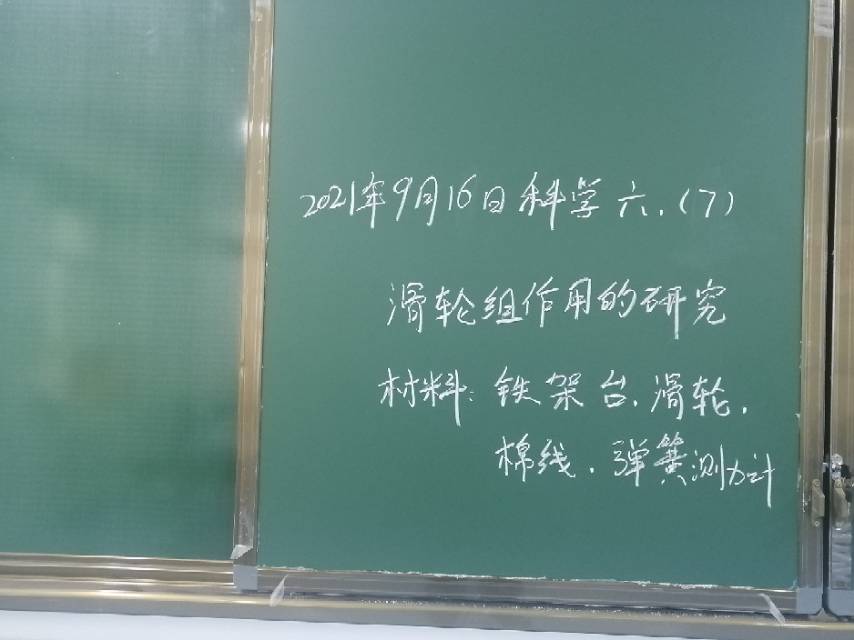 2021年9月16日科学 六.(7)
滑轮组作用的研究
材料:铁架台.滑轮.
棉线.弹簧测力计